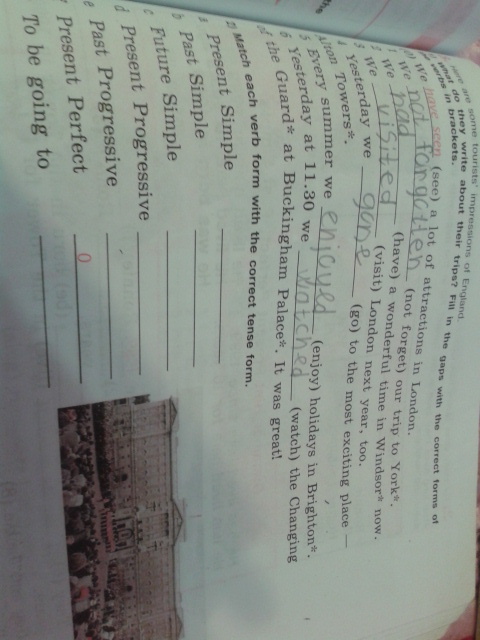 are some tourists' impressions of England.
What do they write about their trips? Fill in the gaps with the correct forms of
in brackets.
We have seen (see) a lot of attractions in London.
1 We not forgotten (not forget) our trip to York*.
2 We had (have) a wonderful time in Windsor* now.
3 We visited (visit) London next year, too.
4 Yesterday we gone (go) to the most exciting place —
Alton Towers*.
5 Every summer we enjoyed (enjoy) holidays in Brighton*.
6 Yesterday at 11.30 we watched (watch) the Changing
of the Guard* at Buckingham Palace*. It was great!
2) Match each verb form with the correct tense form.
a Present Simple
b Past Simple
c Future Simple
d Present Progressive
e Past Progressive
Present Perfect 0
To be going to